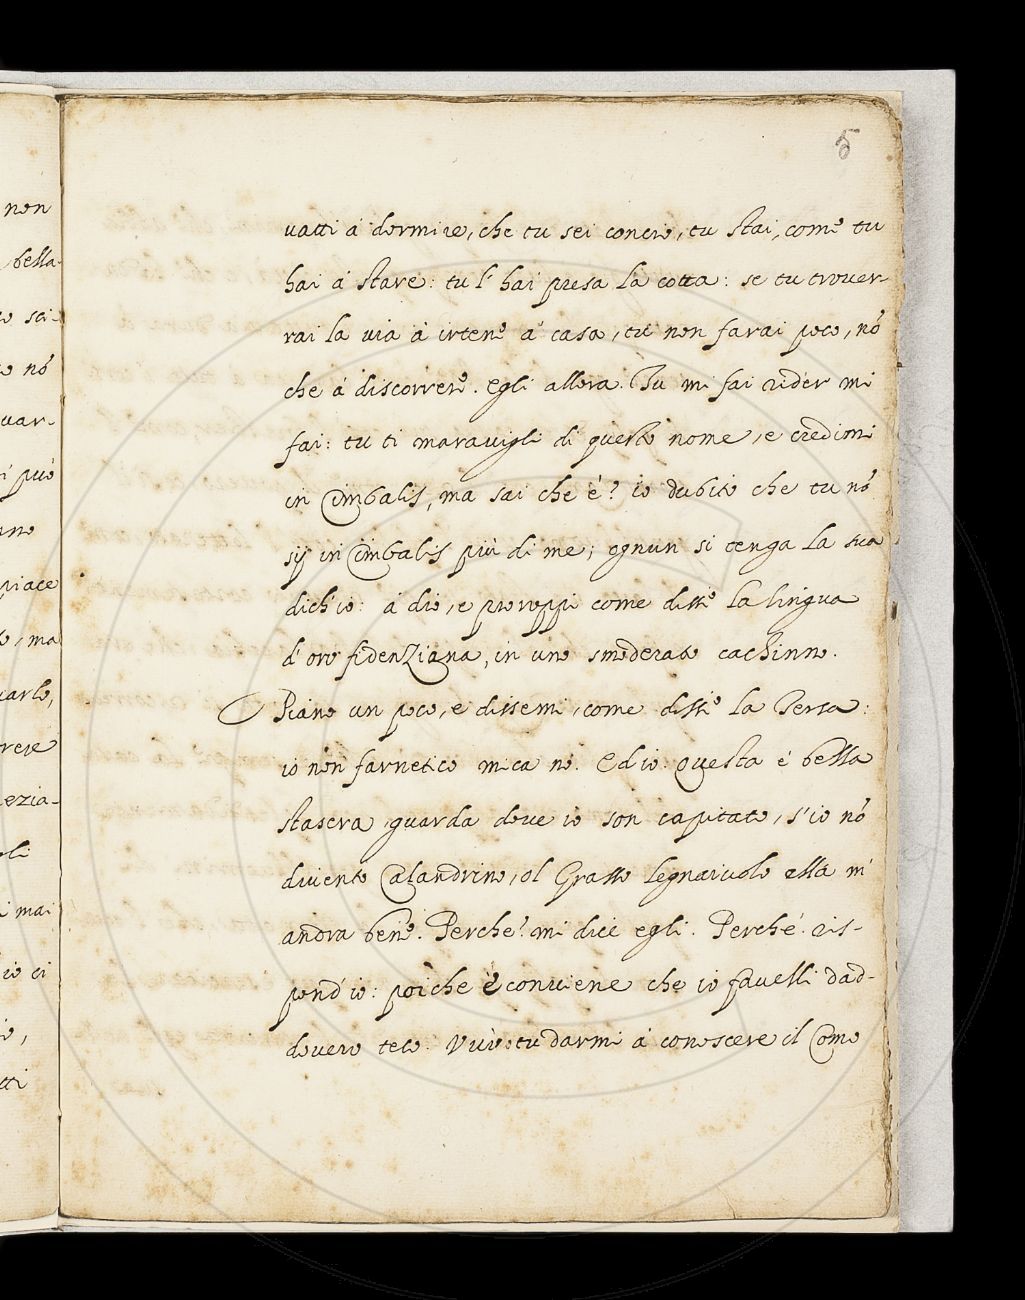 5
uatti á dormire, che tu sei concio, tu stai, come tu
hai á stare: tu l' hai presa la cotta: se tu trouer-
rai la uia á irtene á casa, tu non farai poco, nō
che á discorrere. Egli allora. Tu mi fai rider mi
fai: tu ti marauigli di questo nome, e credimi
in Cimbalis, ma sai che é? io dubito che tu nō
sij in Cimbalis più di me; ognun si tenga la sua
dich'io: á dio, e proroppi come disse la lingua
d'oro fidenziana, in uno smoderato cachinno.
Piano un poco, e dissemi, come disse la Tersa:
io non farnetico mica no. Ed io: questa é bella
stasera guarda doue io son capitato, s'io nō
diuento Calandrino, ol Grasso legnaiuolo ella mi
andra bene. Perche? mi dice egli. Perché ris-
pond'io: poiche é conuiene che io fauelli dad-
douero teco. Vuò tu darmi á conoscere il Como
non
bella
sci-
nō
uar-
può
piace
ma
uarlo,
ezia-
mai
io ci